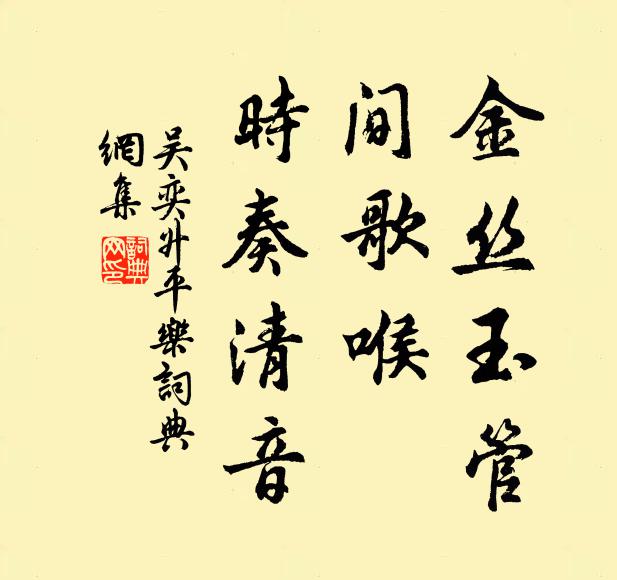 金丝玉管
间歌喉
時奏清音
吴奕升平樂詞典
網集
詞典
网印